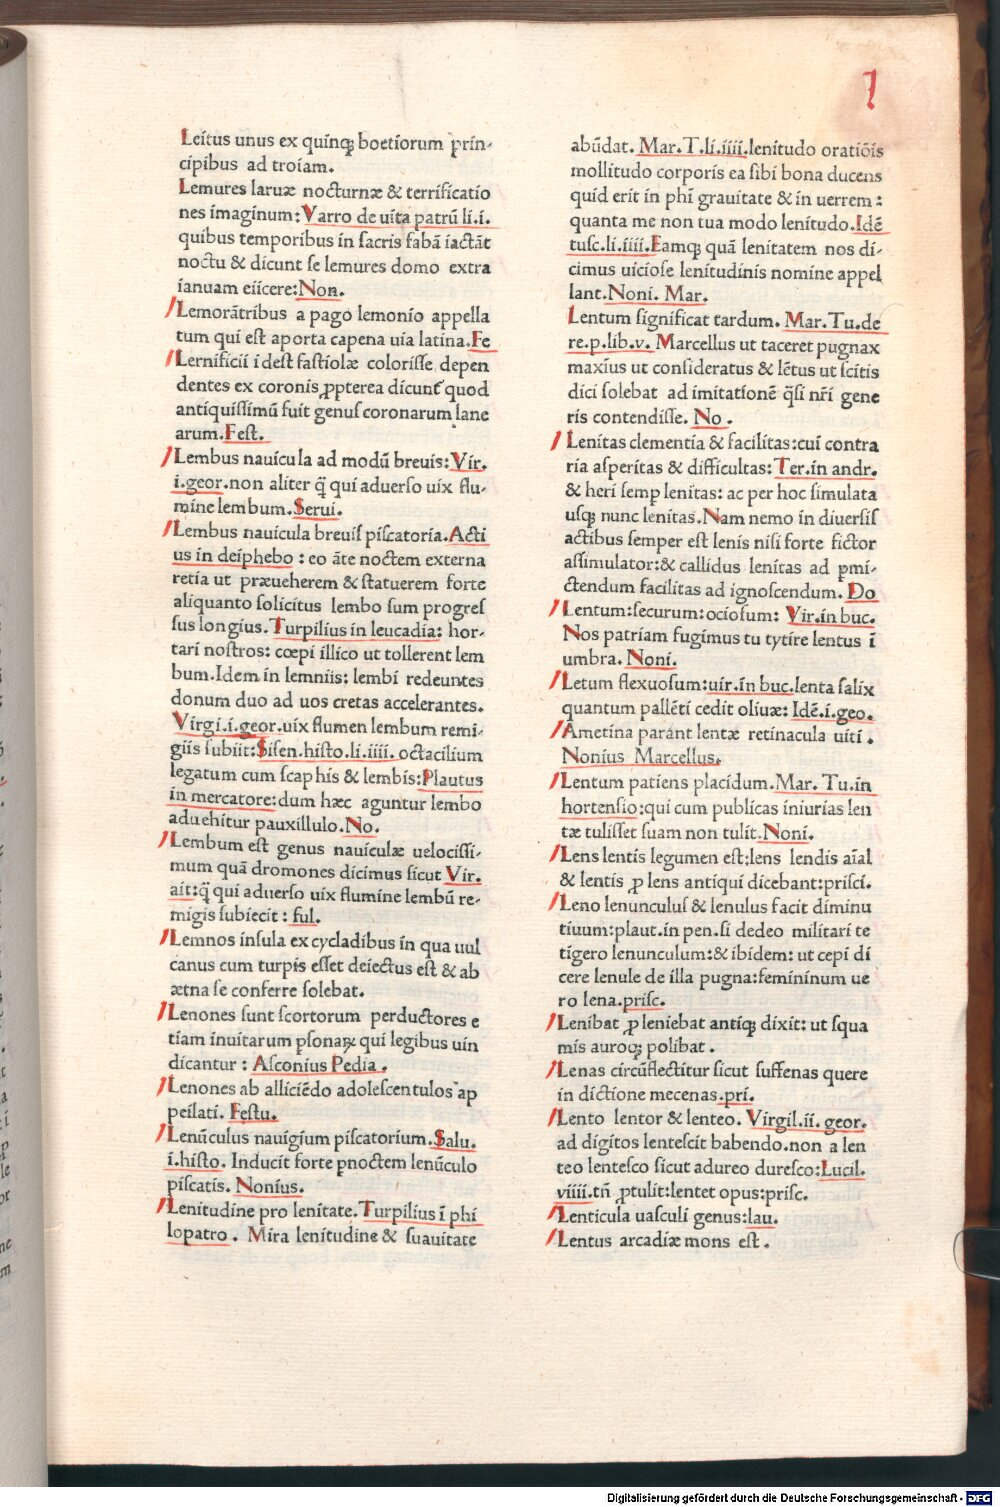 l
Leitus unus ex quinqꝫ boetiorum prin-
cipibus ad troiam.
Lemures laruæ nocturnæ & terrificatio
nes imaginum: Varro de uita patrū li.i.
quibus temporibus in sacris fabā iactāt
noctu & dicunt se lemures domo extra
ianuam eiicere: Non.
Lemorātribus a pago lemonio appella
tum qui est aporta capena uia latina. Fe
Lernificii i dest fastiolæ colorisse depen
dentes ex coronis ꝓpterea dicunt quod
antiquissimū fuit genus coronarum lane
arum. Fest.
Lembus nauicula ad modū breuis: Vir.
i.geor. non aliter q̄ qui aduerso uix flu-
mine lembum. Serui.
Lembus nauicula breuis piscatoria. Acti
us in deiphebo : eo āte noctem externa
retia ut præueherem & statuerem forte
aliquanto solicitus lembo sum progres
sus longius. Turpilius in leucadia: hor-
tari nostros: cœpi illico ut tollerent lem
bum. Idem in lemniis: lembi redeuntes
donum duo ad uos cretas accelerantes.
Virgi.i.geor. uix flumen lembum remi-
giis subiit: Sisen. histo.li.iiii. octacilium
legatum cum scaphis & lembis: Plautus
in mercatore: dum hæc aguntur lembo
aduehitur pauxillulo. No.
Lembum est genus nauiculæ uelocissi-
mum quā dromones dicimus sicut Vir.
ait: q̄ qui aduerso uix flumine lembū re-
migis subiecit : ful.
Lemnos insula ex cycladibus in qua uul
canus cum turpis esset deiectus est & ab
ætna se conferre solebat.
Lenones sunt scortorum perductores e
tiam inuitarum psonaꝝ qui legibus uin
dicantur : Asconius Pedia .
Lenones ab alliciēdo adolescentulos ap
peilati. Festu.
Lenūculus nauigium piscatorium. Salu.
i.histo. Inducit forte pnoctem lenūculo
piscatis. Nonius.
Lenitudine pro lenitate. Turpilius ī phi
lopatro . Mira lenitudine & suauitate
abūdat. Mar. T. li.iiii. lenitudo oratiōis
mollitudo corporis ea sibi bona ducens
quid erit in phī grauitate & in uerrem :
quanta me non tua modo lenitudo. Idē
tusc.li.iiii. Eamqꝫ quā lenitatem nos di-
cimus uiciose lenitudinis nomine appel
lant. Noni. Mar.
Lentum significat tardum. Mar. Tu.de
re.p.lib.v. Marcellus ut taceret pugnax
maxius ut consideratus & lētus ut scitis
dici solebat ad imitationē q̄si nr̄i gene
ris contendisse. No .
Lenitas clementia & facilitas: cui contra
ria asperitas & difficultas: Ter. in andr.
& heri semp lenitas: ac per hoc simulata
usqꝫ nunc lenitas. Nam nemo in diuersis
actibus semper est lenis nisi forte fictor
assimulator: & callidus lenitas ad pmi-
ctendum facilitas ad ignoscendum. Do
Lentum: securum: ociosum: Vir. in buc.
Nos patriam fugimus tu tytire lentus ī
umbra. Noni.
Letum flexuosum: uir. in buc. lenta salix
quantum pallēti cedit oliuæ: Idē.i.geo.
Ametina parant lentæ retinacula uiti .
Nonius Marcellus.
Lentum patiens placidum. Mar. Tu. in
hortensio: qui cum publicas iniurias len
tæ tulisset suam non tulit. Noni.
Lens lentis legumen est; lens lendis aīal
& lentis ꝓ lens antiqui dicebant: prisci.
Leno lenunculus & lenulus facit diminu
tiuum: plaut. in pen. si dedeo militari te
tigero lenunculum: & ibidem: ut cepi di
cere lenule de illa pugna: femininum ue
ro lena. prisc.
Lenibat ꝓ leniebat antiqꝫ dixit: ut squa
mis auroqꝫ polibat .
Lenas circūflectitur sicut suffenas quere
in dictione mecenas. pri.
Lento lentor & lenteo. Virgil.ii. geor.
ad digitos lentescit babendo. non a len
teo lentesco sicut adureo duresco: Lucil.
viiii. tn̄ ꝓtulit: lentet opus: prisc.
Lenticula uasculi genus: lau.
Lentus arcadiæ mons est .
Digitalisierung gefördert durch die Deutsche Forschungsgemeinschaft - DFG